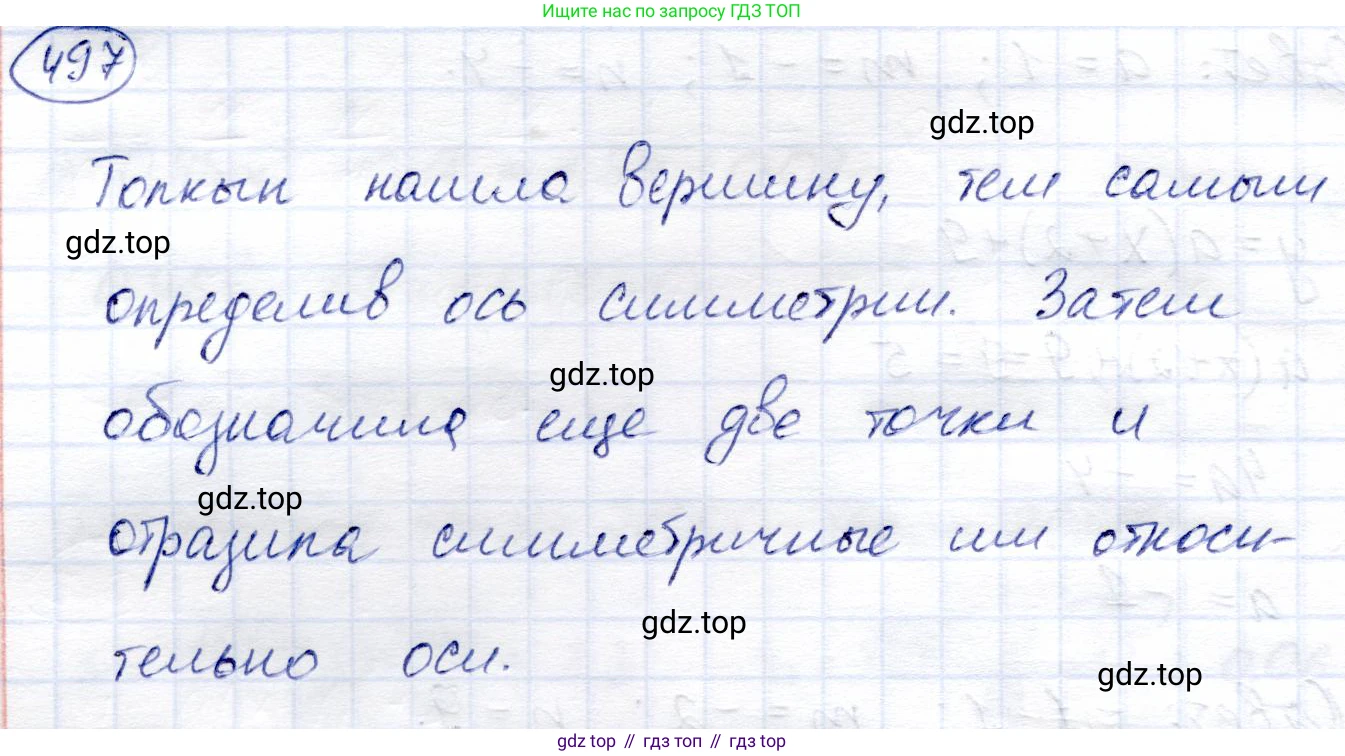 Ищите нас по запросу ГДЗ ТОП
497
gdz.top
Толкын нашла вершину, тем самым
gdz.top
определив ось симметрии. Затем
gdz.top
обозначила еще две точки и
gdz.top
отразила симметричные им относи-
gdz.top
тельно оси.
gdz.top
gdz top // гдз топ // гдз top